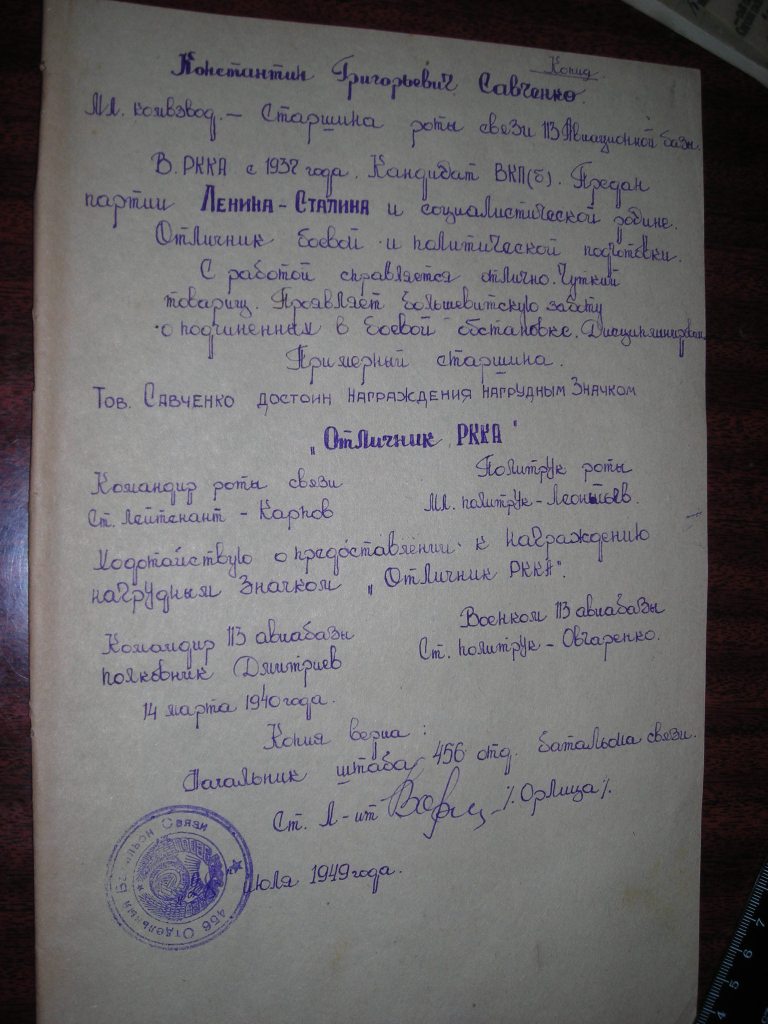 Копия.
Константин Григорьевич Савченко.
Мл. комвзвод. – Старшина роты связи 113 Авиационной базы.
В РККА с 1937 года. Кандидат ВКП(б). Предан
партии Ленина - Сталина и социалистической родине.
Отличник боевой и политической подготовки.
С работой справляется отлично. Чуткий
товарищ. Проявляет большевитскую заботу
о подчиненных в боевой обстановке. Дисциплинирован.
Примерный старшина.
Тов. Савченко достоин награждения нагрудным Значком
„Отличник РККА"
Командир роты связи
Ст. лейтенант - Карпов
Политрук роты
Мл. политрук - Леонтьев.
Ходотайствую о предоставлении к награждению
нагрудным Значком „Отличник РККА".
Командир 113 авиабазы
полковник Дмитриев
Военком 113 авиабазы
Ст. политрук - Овчаренко.
14 марта 1940 года.
Копия верна:
Начальник штаба 456 отд. батальона связи.
Ст. Л-нт /Орлица/.
Июля 1949 года.
456 Отдельный Батальон Связи
7
6
5
4